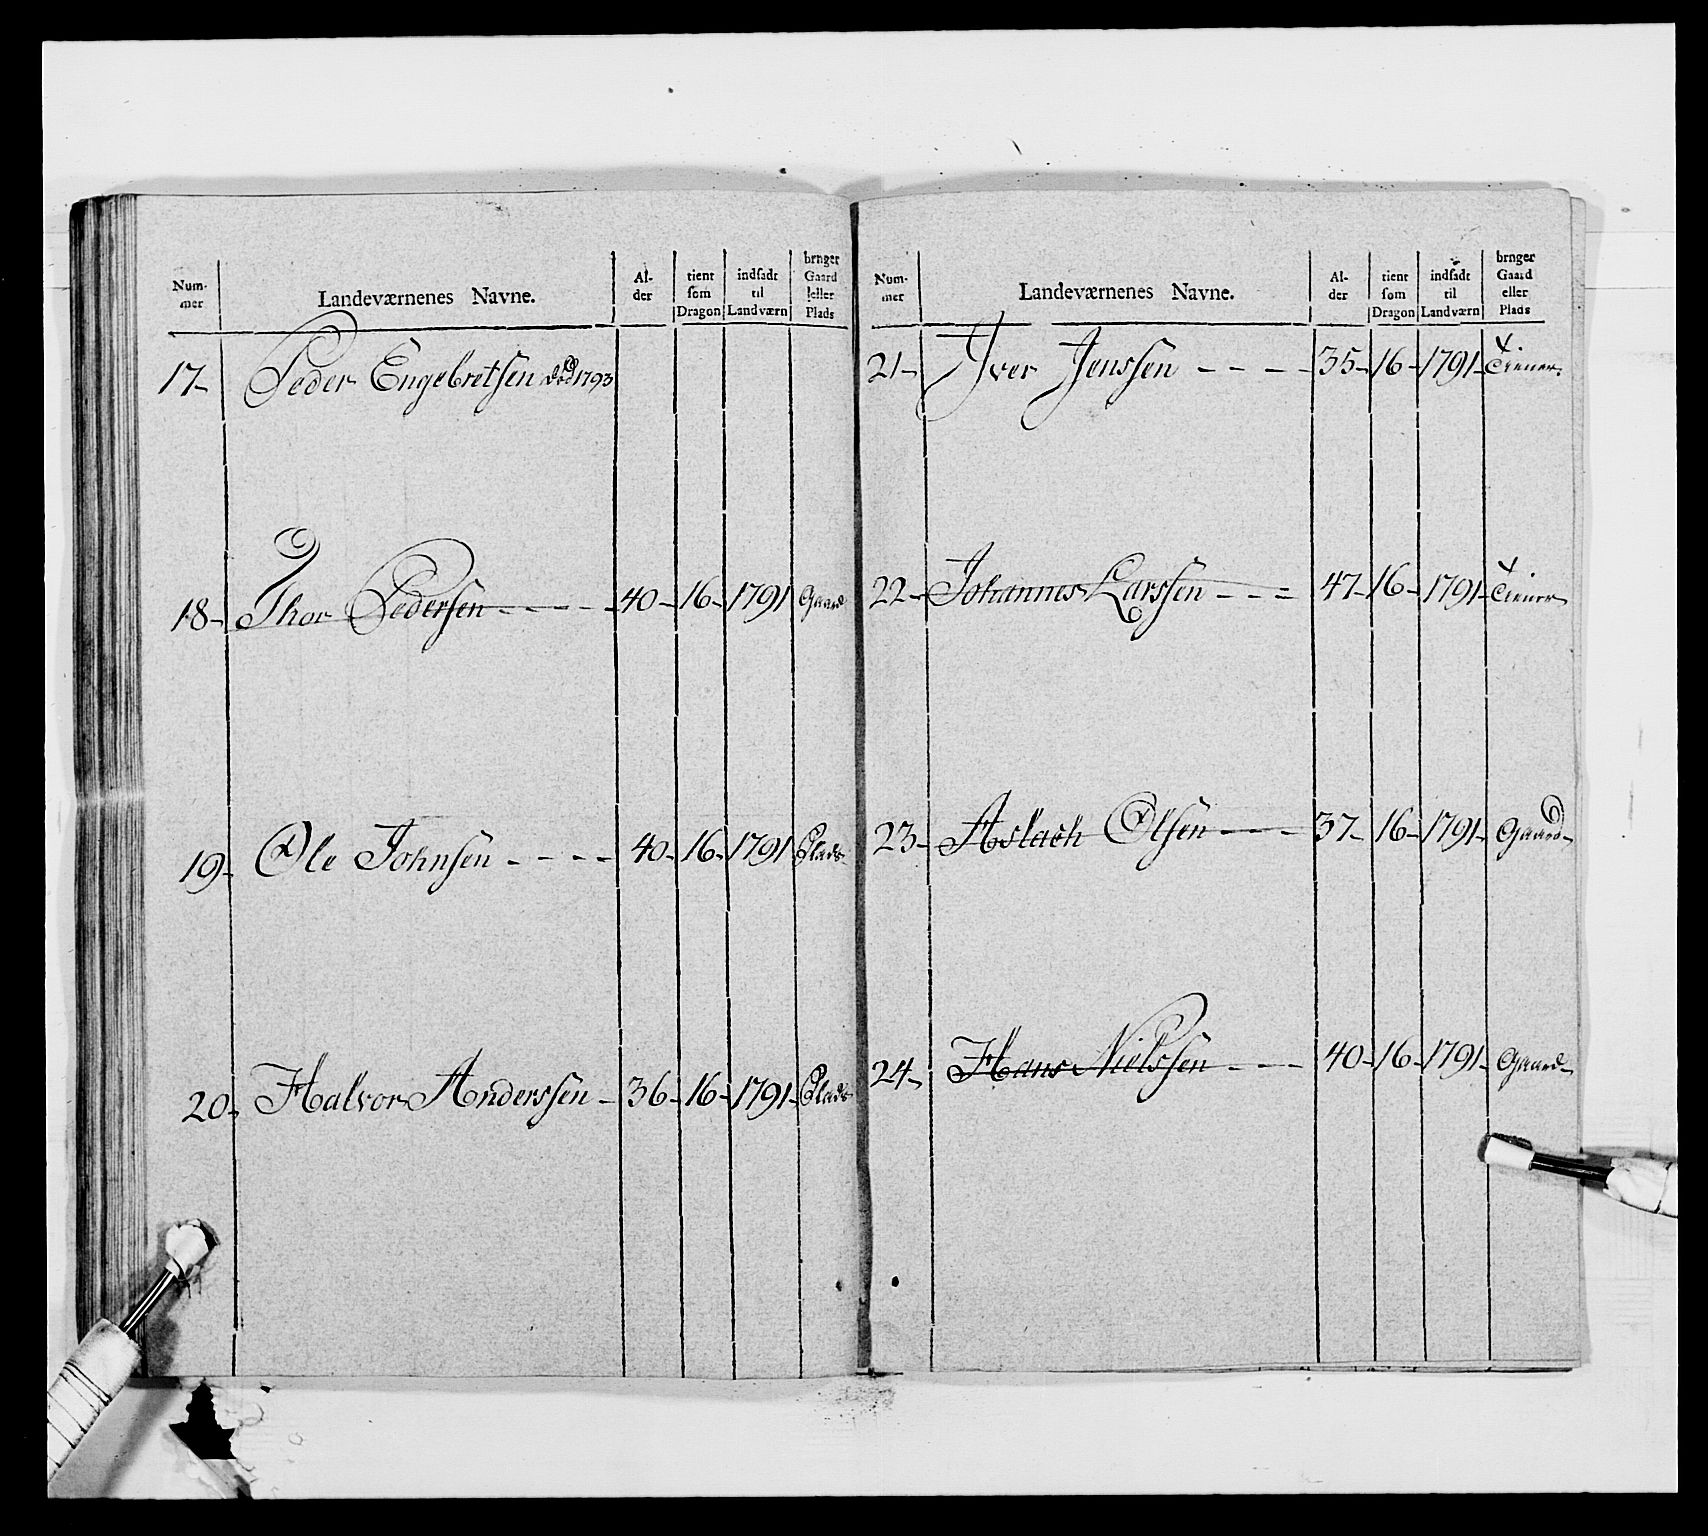 Num- Al- tient indsadt bruger
mer Landeværnenes Navne. der som til Gaard
Dragon Landværn eller
Plads
17- Peder Engebretsen död 1793
18- Thor Pedersen - - - - 40- 16- 1791 Gaard
19- Ole Johnsen - - - - 40- 16- 1791 Plads-
20- Halvor Anderssen - 36- 16- 1791- Plads
Num- Al- tient indsadt bruger
mer Landeværnenes Navne. der som til Gaard
Dragon Landværn eller
Plads
21- Iver Jenssen - - - - 35- 16- 1791- Tiener.
22- Johannes Larssen - - = 47- 16- 1791- Tiener
23- Aslach Olsen - - - 37- 16- 1791- Gaard-
24- Hans Nielssen - - - 40- 16- 1791- Gaard-